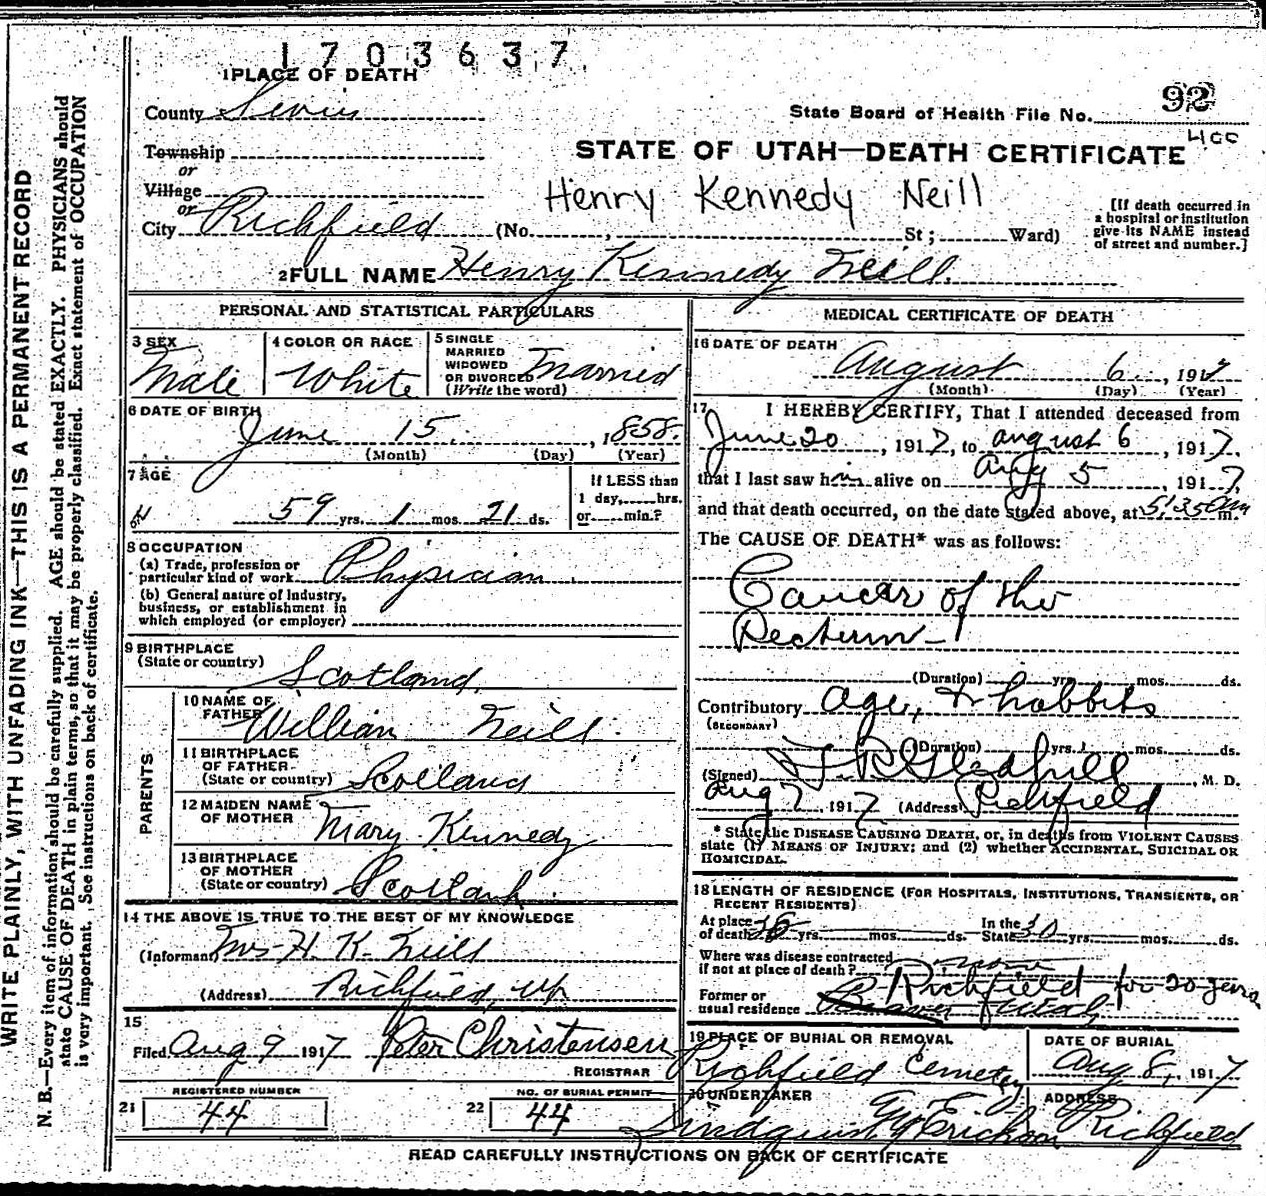 WRITE PLAINLY, WITH UNFADING INK—THIS IS A PERMANENT RECORD
N. B.—Every item of information should be carefully supplied. AGE should be stated EXACTLY. PHYSICIANS should
state CAUSE OF DEATH in plain terms, so that it may be properly classified. Exact statement of OCCUPATION
is very important. See instructions on back of certificate.
1703637
1 PLACE OF DEATH
County Sevier
State Board of Health File No. 92
400
Township
or
Village
or
City Richfield (No. , St; Ward)
STATE OF UTAH—DEATH CERTIFICATE
Henry Kennedy Neill
[If death occurred in
a hospital or institution
give its NAME instead
of street and number.]
2 FULL NAME Henry Kennedy Neill.
PERSONAL AND STATISTICAL PARTICULARS
3 SEX
Male
4 COLOR OR RACE
White
5 SINGLE
MARRIED
WIDOWED
OR DIVORCED
(Write the word)
Married
6 DATE OF BIRTH
June 15. , 1858.
(Month) (Day) (Year)
7 AGE
59 yrs. 1 mos. 21 ds.
If LESS than
1 day, hrs.
or min.?
8 OCCUPATION
(a) Trade, profession or
particular kind of work Physician
(b) General nature of industry,
business, or establishment in
which employed (or employer)
9 BIRTHPLACE
(State or country) Scotland.
PARENTS
10 NAME OF
FATHER William Neill.
11 BIRTHPLACE
OF FATHER
(State or country) Scotland
12 MAIDEN NAME
OF MOTHER Mary Kennedy
13 BIRTHPLACE
OF MOTHER
(State or country) Scotland
14 THE ABOVE IS TRUE TO THE BEST OF MY KNOWLEDGE
(Informant Mrs H. K. Neill
(Address) Richfield, Ut
15
Filed Aug 9 1917 Peter Christensen
REGISTRAR
REGISTERED NUMBER
21 44
NO. OF BURIAL PERMIT
22 44
MEDICAL CERTIFICATE OF DEATH
16 DATE OF DEATH
August 6, 1917
(Month) (Day) (Year)
17 I HEREBY CERTIFY, That I attended deceased from
June 20, 1917, to august 6, 1917.
that I last saw him alive on Aug 5 191 7,
and that death occurred, on the date stated above, at 5:35 am m.
The CAUSE OF DEATH* was as follows:
Cancer of the
Rectum—
(Duration) yrs. mos. ds.
Contributory age, & habbits
(SECONDARY)
(Duration) yrs. mos. ds.
(Signed) J. R. Gledhill M. D.
Aug 7, 1917 (Address) Richfield
* State the DISEASE CAUSING DEATH, or, in deaths from VIOLENT CAUSES
state (1) MEANS OF INJURY; and (2) whether ACCIDENTAL, SUICIDAL OR
HOMICIDAL.
18 LENGTH OF RESIDENCE (FOR HOSPITALS, INSTITUTIONS, TRANSIENTS, OR
RECENT RESIDENTS)
At place
of death yrs. mos. ds.
In the
State 30 yrs. mos. ds.
Where was disease contracted
if not at place of death?
Richfield for 20 years
Former or
usual residence Beaver Utah
19 PLACE OF BURIAL OR REMOVAL
Richfield Cemetery
DATE OF BURIAL
Aug 8, 1917
20 UNDERTAKER
Lindquist Erickson
ADDRESS
Richfield
READ CAREFULLY INSTRUCTIONS ON BACK OF CERTIFICATE